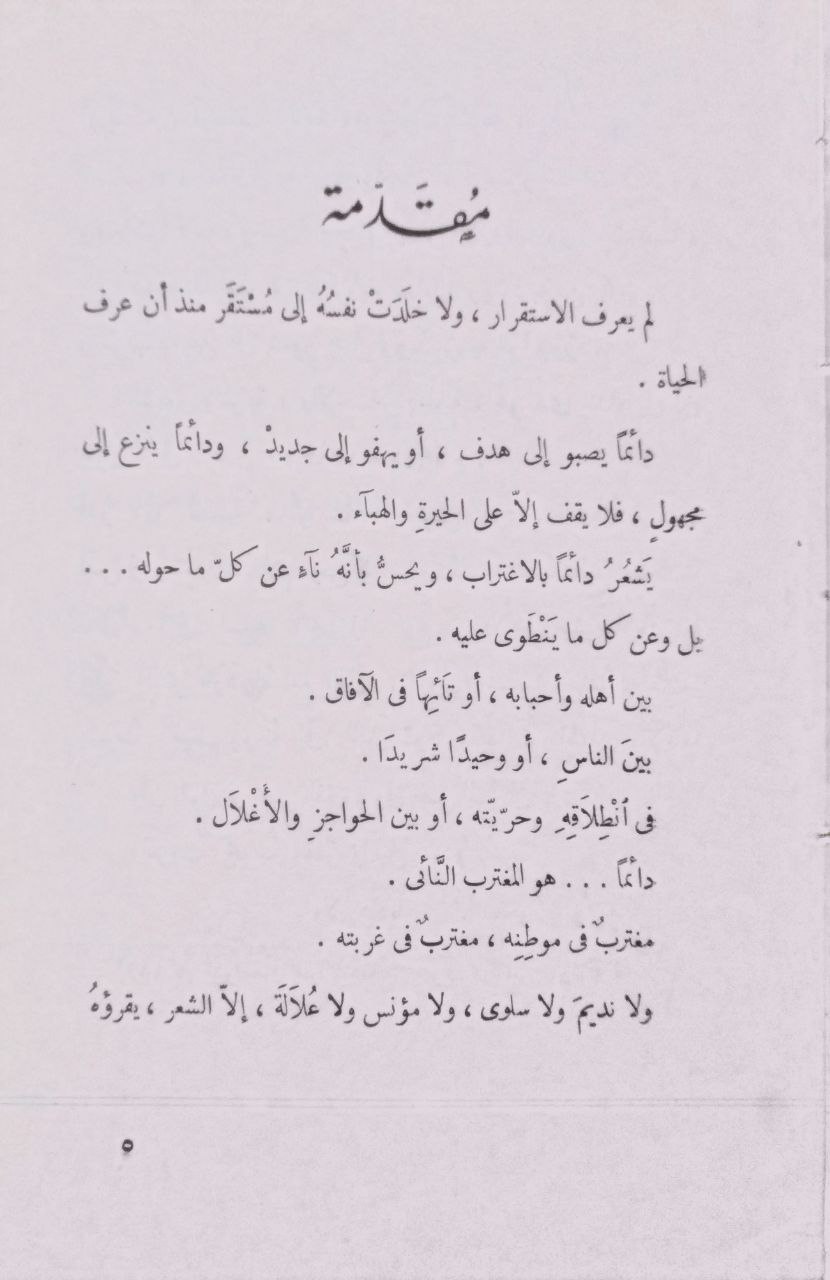 مُقَدّمة
لم يعرف الاستقرار ، ولا خلَدَتْ نفسُهُ إلى مُسْتَقَر منذ أن عرف
الحياة .
دائماً يصبو إلى هدف ، أو يهفو إلى جديدْ ، ودائماً ينزع إلى
مجهولٍ ، فلا يقف إلاّ على الحيرةِ والهبآء .
يَشعُرُ دائماً بالاغتراب ، ويحسُّ بأنَّهُ نآءٍ عن كلّ ما حوله . . .
بل وعن كل ما يَنْطَوى عليه .
بين أهله وأحبابه ، أو تَائِهاً فى الآفاق .
بينَ الناسِ ، أو وحيدًا شريدَا .
فى ٱنْطِلاَقِهِ وحرّيّته ، أو بين الحواجزِ والأَغْلاَل .
دائماً . . . هو المغترب النَّائى .
مغتربٌ فى موطِنِه ، مغتربٌ فى غربته .
ولا نديمَ ولا سلوى ، ولا مؤنس ولا عُلاَلَةَ ، إلاّ الشعر ، يقرؤهُ
٥